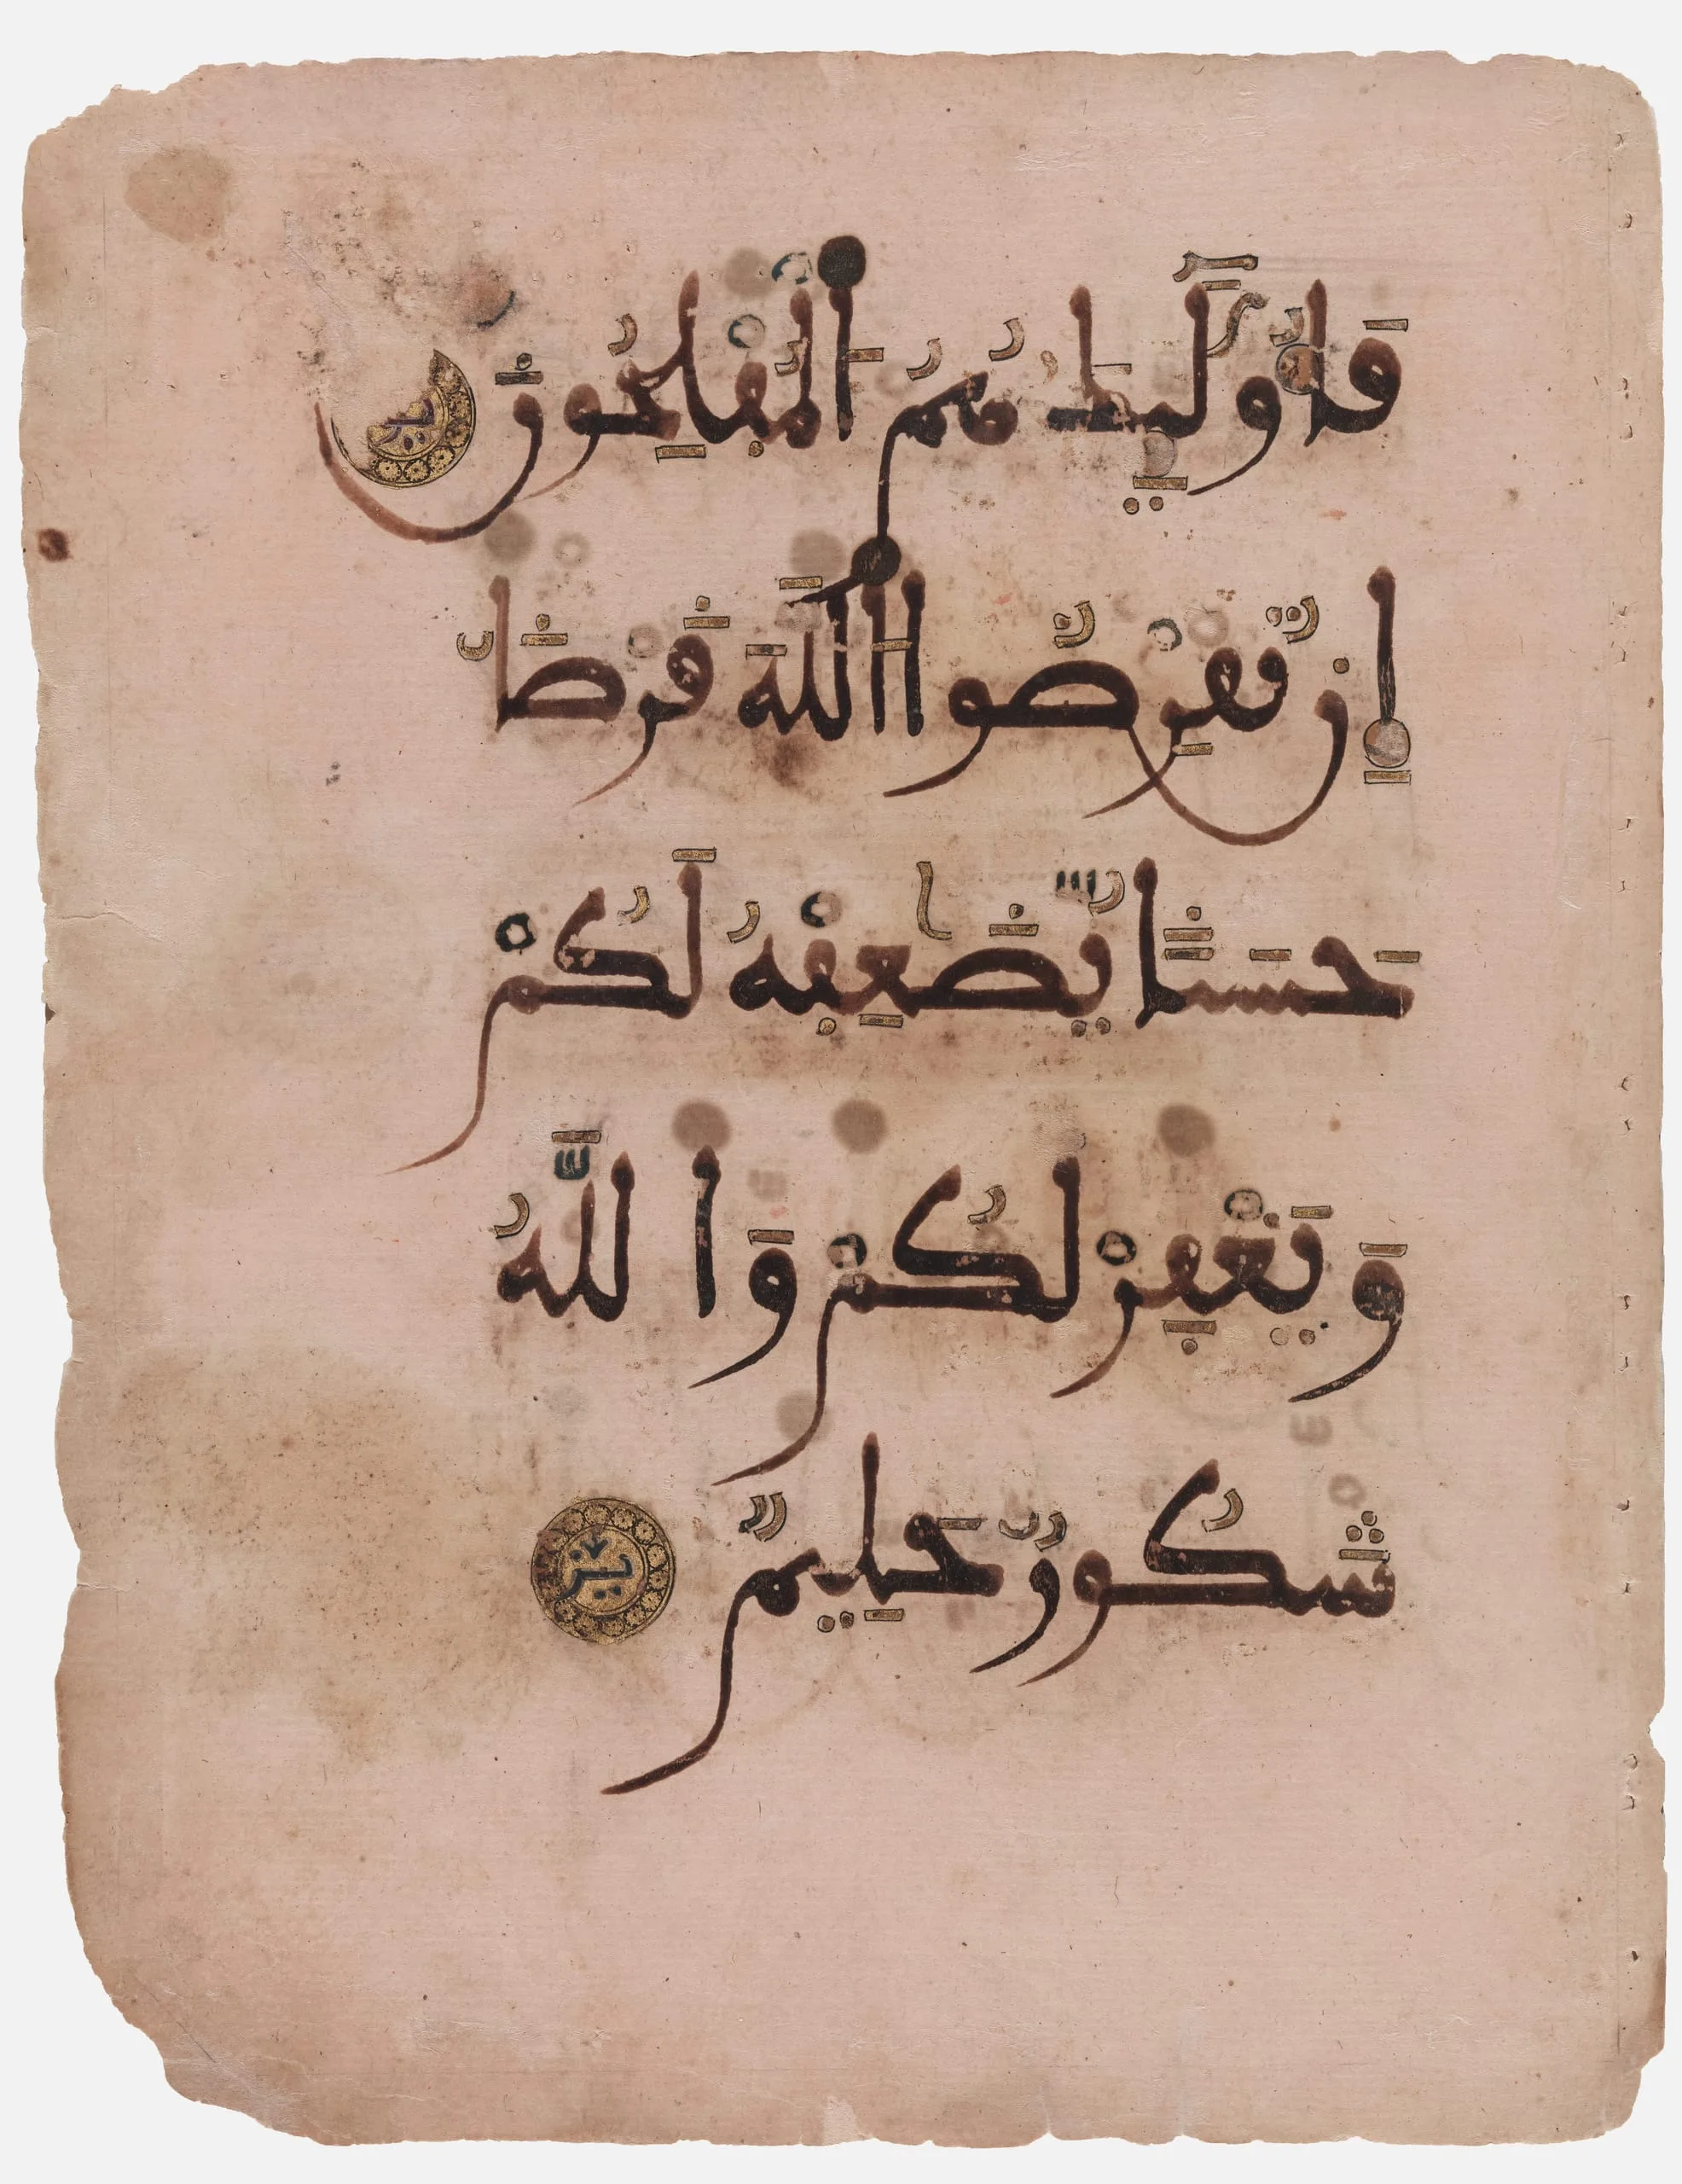 فَأُولَٰئِكَ هُمُ الْمُفْلِحُونَ
إِن تُقْرِضُوا اللَّهَ قَرْضًا
حَسَنًا يُضَٰعِفْهُ لَكُمْ
وَيَغْفِرْ لَكُمْ وَاللَّهُ
شَكُورٌ حَلِيمٌ يز